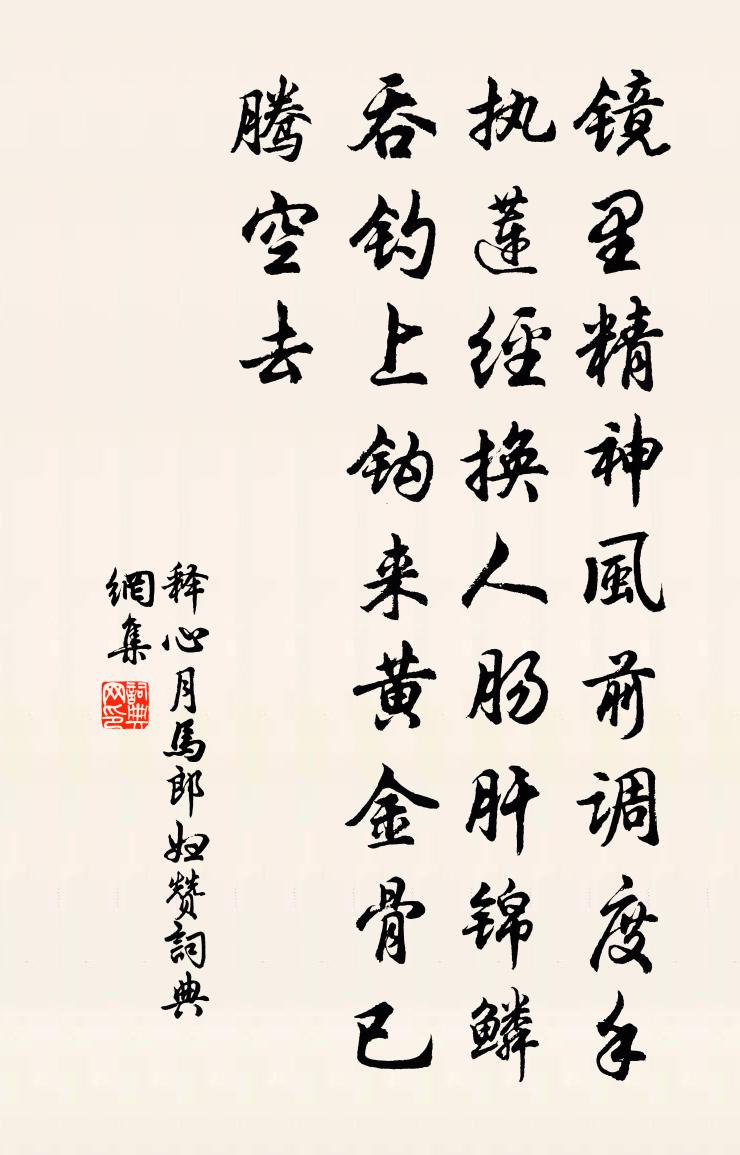 镜里精神風前调度手
执莲经换人肠肝锦鳞
吞钓上钩来黄金骨已
腾空去
释心月馬郎妇赞詞典
網集
詞典网印